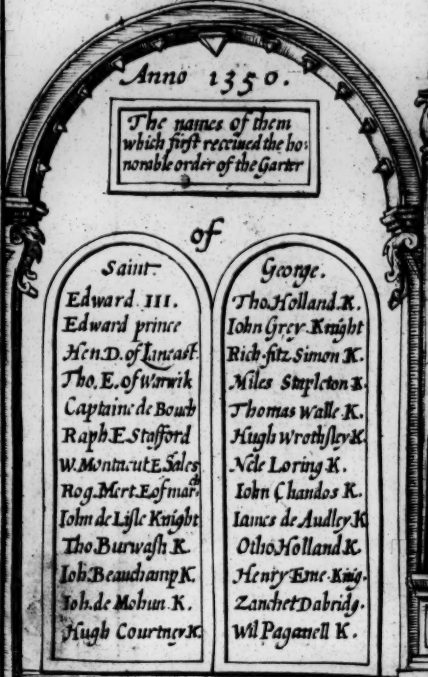 Anno 1350.
The names of them
which first receiued the ho:
norable order of the Garter
of
Saint
Edward III.
Edward prince
Hen. D. of Lancast.
Tho. E. of Warwik
Captaine de Bouch
Raph E Stafford
W. Montacut E Sales
Rog. Mert. E of mar ch
Iohn de Lisle Knight
Tho. Burwash K.
Ioh. Beauchamp K.
Ioh. de Mohun. K.
Hugh Courtney K.
George.
Tho. Holland. K.
Iohn Grey. Knight
Rich. fitz Simon K.
Miles Stapleton K.
Thomas Walle K.
Hugh Wrothsley K.
Nele Loring K.
Iohn Chandos K.
Iames de Audley K
Otho. Holland. K.
Henry Eme Knig.
Zanchet Dabridg.
Wil Paganell K.